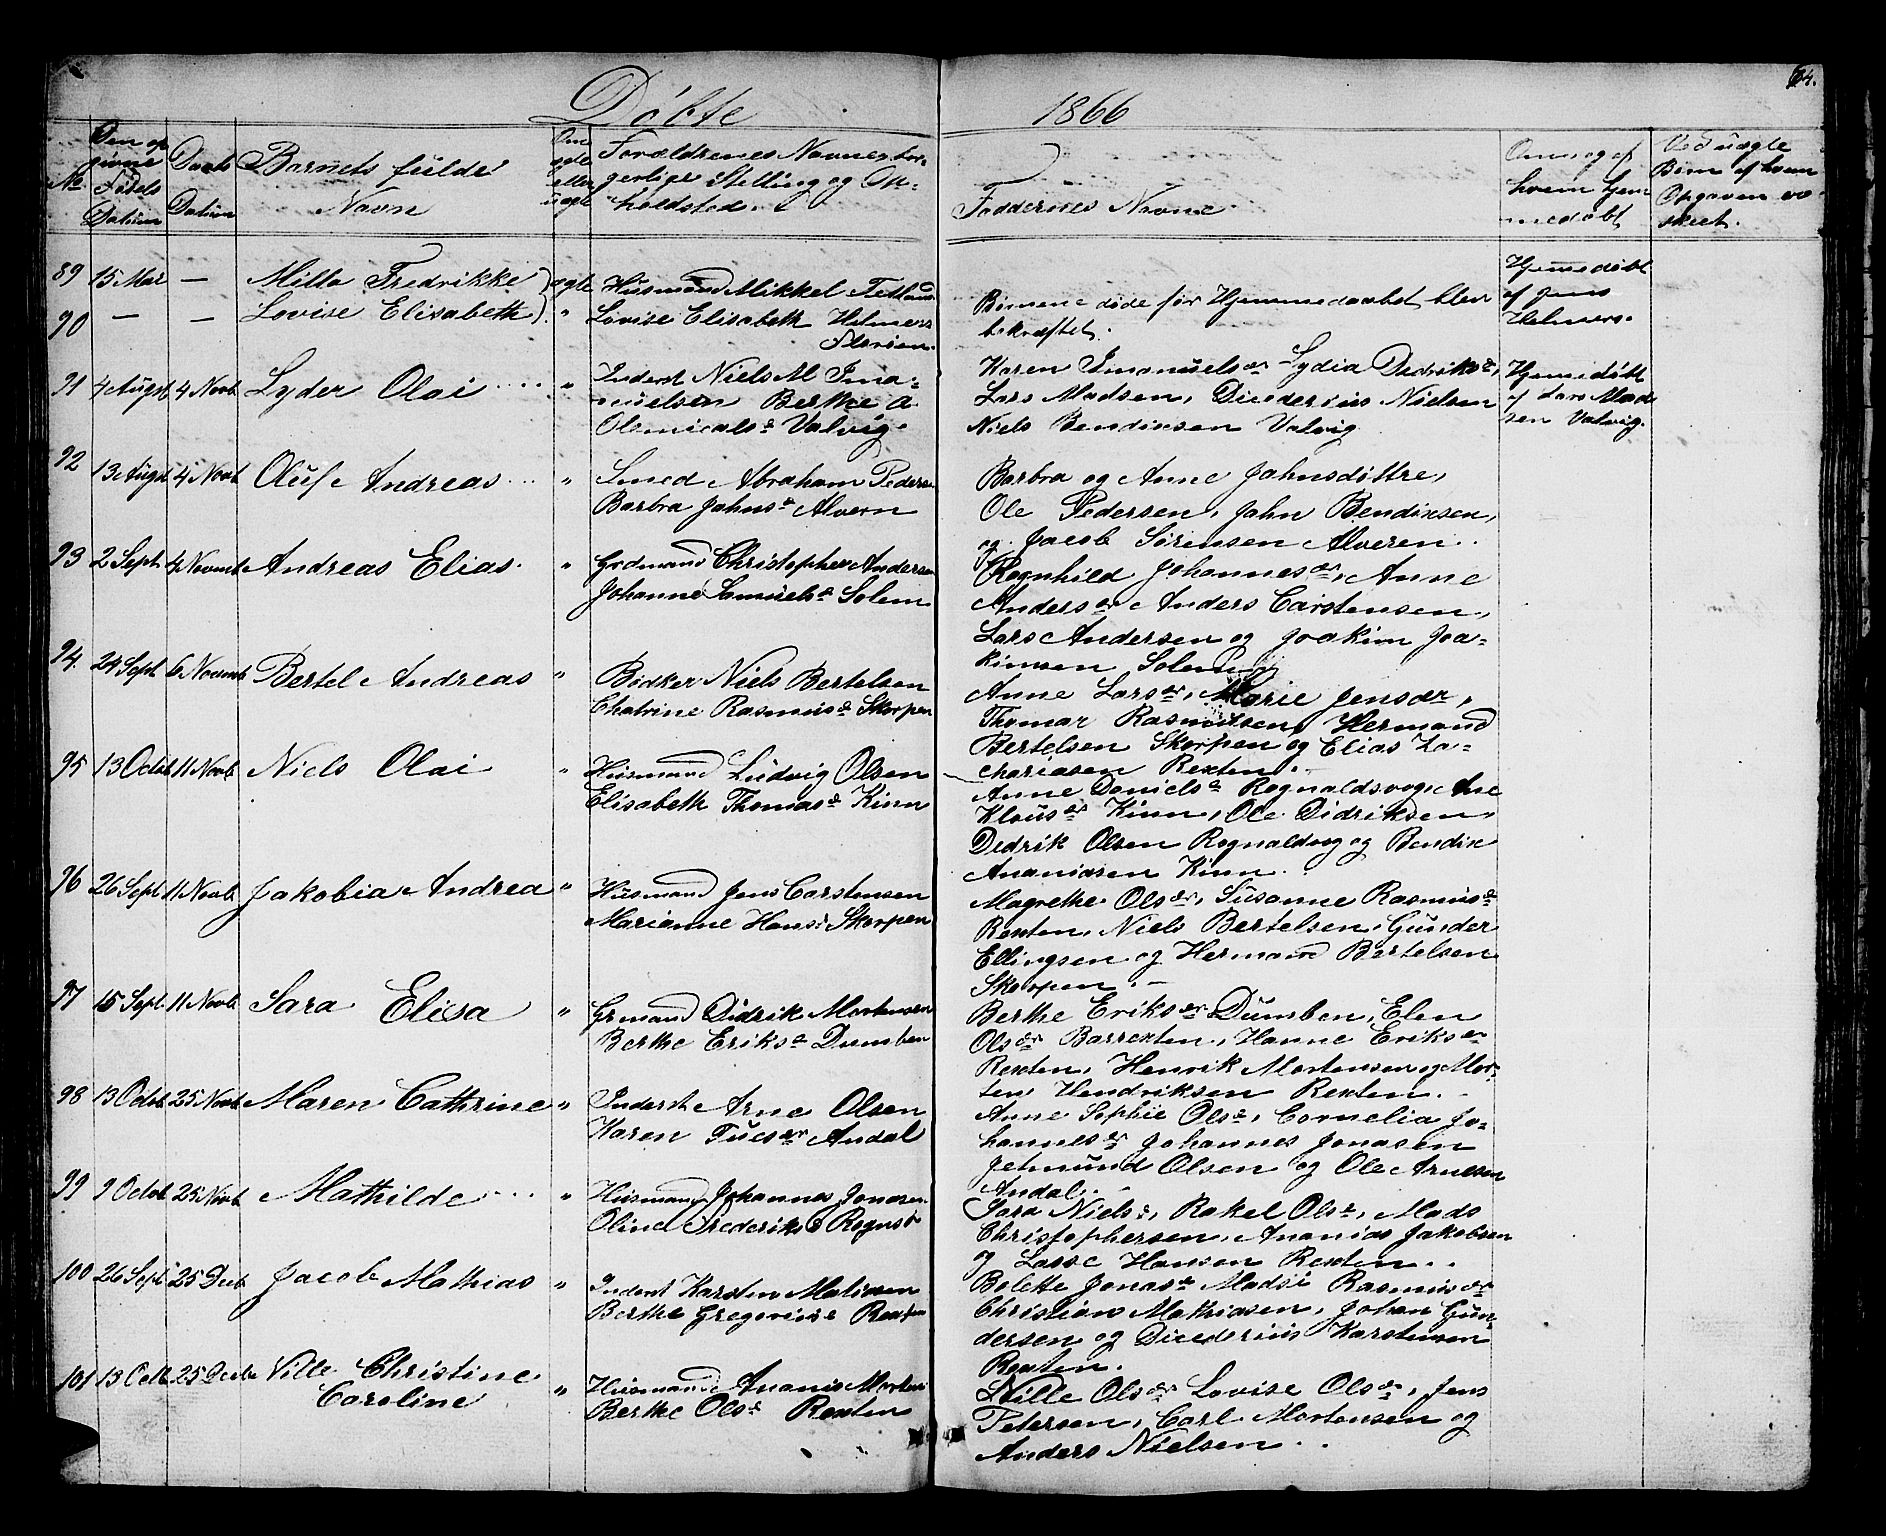 64.
Døbte 1866
No. Den op
givne
Fødsels
Datum
Daabs
Datum
Barnets fulde
Navn
Om
ægte
eller
uægte
Forældrenes Navne, bor-
gerlige Stilling og Op-
holdssted.
Faddernes Navne
Om og af
hvem hjem
medøbt
Ved uægte
Børn af hvem
Opgaven er
skeet.
89 15 Mar — Milla Fredrikke ægte Husmand Mikkel
90 — — Lovise Elisabeth " Lovise Elisabeth Helmers
Florøen.
Børnene døde før Hjemmedaabet blev
bekræftet.
Hjemmedøbt
af Jens
Helmers.
91 4 Augst 4 Novb Lyder Olai " Inderst Niels M Ima-
nuelsen Berthe A
Valvig.
Karen Emanuelsdr Lydia Didriksd
Lars Madsen, Diederius Nielsen
Niels Bendixsen Valvig
Hjemedøbt
af Lars Mad
sen Valvig.
92 13 Augst 4 Novb Oluf Andreas " Smed Abraham Pedersen
Barbra Jahnsd Alvern
Barbra og Anne Jahnsdøttre,
Ole Pedersen, Jahn Bendixsen,
og Jacob Sørensen Alveren.
93 2 Sept 4 Novemb Andreas Elias. " Grdmand Christopher Andersen
Johanne Samuelsd Solem
Ragnhild Johannesdr, Anne
Andersdr Anders Carstensen,
Lars Andersen og Joakim Joa-
kimsen Solem
94. 24 Sept 6 Novemb Bertel Andreas " Bødker Niels Bertelsen
Chatrine Rasmusd Skorpen
Anne Larsdr, Marie Jensdr,
Thomas Rasmussen, Hermand
Bertelsen Skorpen og Elias Za-
chariasen Rexten.
95 13 Octb 11 Novb Niels Olai " Husmand Ludvig Olsen
Elisabeth Thomasd Kinn
Anne Danielsd Rognaldsvog, Ane
Klausdr Kinn, Ole Didriksen,
Dedrik Olsen Rognaldvog og Bendix
Ananiasen Kinn.
96 26 Sept 11 Novb Jakobia Andrea " Husmand Jens Carstensen
Marianne Hansd Skorpen
Magrethe Olsdr, Susanne Rasmusd
Rexten, Niels Bertelsen, Gunder
Ellingsen og Hermand Bertelsen
Skorpen.
97 15 Sept 11 Novb Sara Elisa " Grmand Didrik Mortensen
Berthe Eriksd Dumben
Berthe Eriksdr Dumben, Elen
Olsdr Barrexten, Hanne Eriksdr
Rexten, Henrik Mortensen og Mor-
ten Hendriksen Rexten.
98 13 Octob 25 Novb Maren Cathrine " Inderst Arne Olsen
Karen Andal
Anne Sophie Olsd, Cornelia Jo-
hannesdr Johannes Jonasen
Jetmund Olsen og Ole Arnesen
Andal.
99 9 Octob 25 Novb Mathilde " Husmand Johannes Jonasen
Oline Frederiksd
Sara Nielsd, Rakel Olsd, Mads
Christophersen, Ananias Jakobsen
og Lasse Hansen Rexten.
100 26 Sept 25 Decb Jacob Mathias " Inderst Karsten
Berthe Gregoriusd
Bolette Jonasd Madsi Rasmusdr
Christian Mathiasen, Johan Gun-
dersen og Diederius Karstensen
Rexten.
101 13 Octb 25 Decbr Nille Christine
Caroline " Husmand Ananias
Berthe Olsd Rexten
Nille Olsdr Lovise Olsdr, Jens
Petersen, Carl Mortensen og
Anders Nielsen.